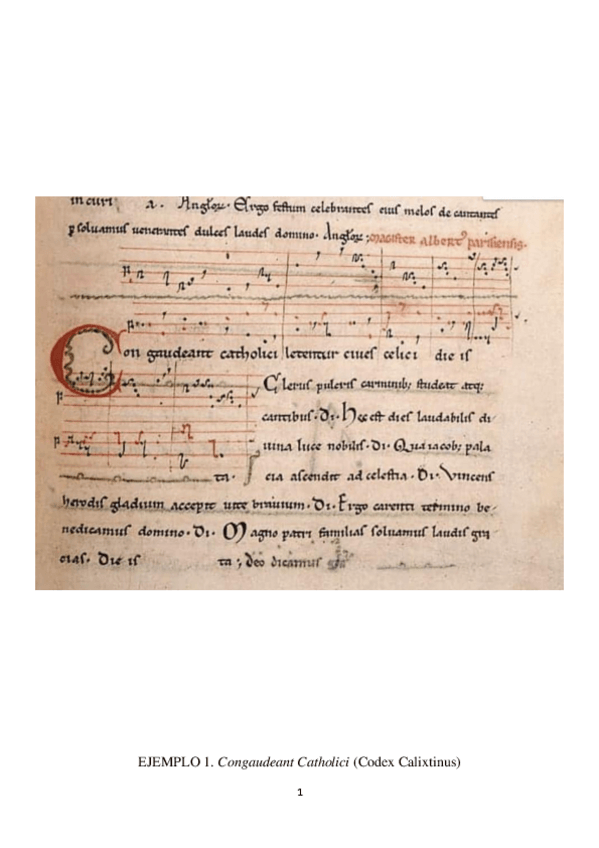 in curi a. Angloꝝ. Ergo festum celebrantes eius melos decantantes
ꝑsoluamus uenerantes dulces laudes domino. Angloꝝ; magister albertꝰ parisiensis.
Con gaudeant catholici letentur ciues celici die is
Clerus pulcris carminibꝫ studeat atqꝫ
cantibus. Di. Hec est dies laudabilis di-
uina luce nobilis. Di. Qua iacobꝫ pala
ta. cia ascendit ad celestia. Di. Vincens
herodis gladium accepit uite brauium. Di. Ergo carenti termino be-
nedicamus domino. Di. Magno patri familias soluamus laudis gra-
cias. Die is ta; deo dicamus
EJEMPLO 1. Congaudeant Catholici (Codex Calixtinus)
1